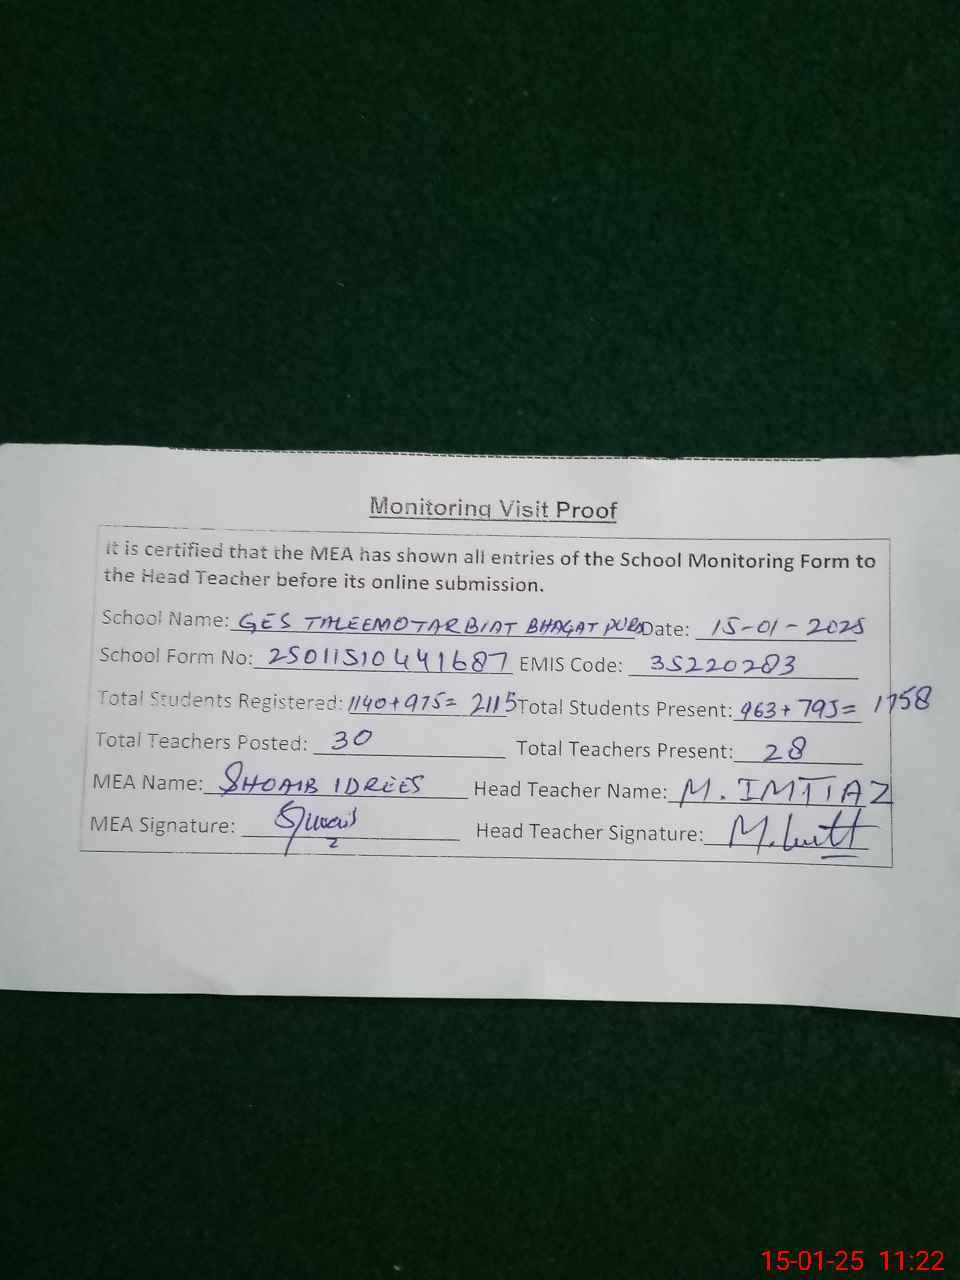 Monitoring Visit Proof
It is certified that the MEA has shown all entries of the School Monitoring Form to
the Head Teacher before its online submission.
School Name: GES TALEEMOTARBIAT BHAGAT PURA Date: 15-01-2025
School Form No: 250115104441687 EMIS Code: 35220283
Total Students Registered: 1140+975= 2115 Total Students Present: 963+795= 1758
Total Teachers Posted: 30 Total Teachers Present: 28
MEA Name: SHOAIB IDREES Head Teacher Name: M. IMTIAZ
MEA Signature: Head Teacher Signature:
15-01-25 11:22